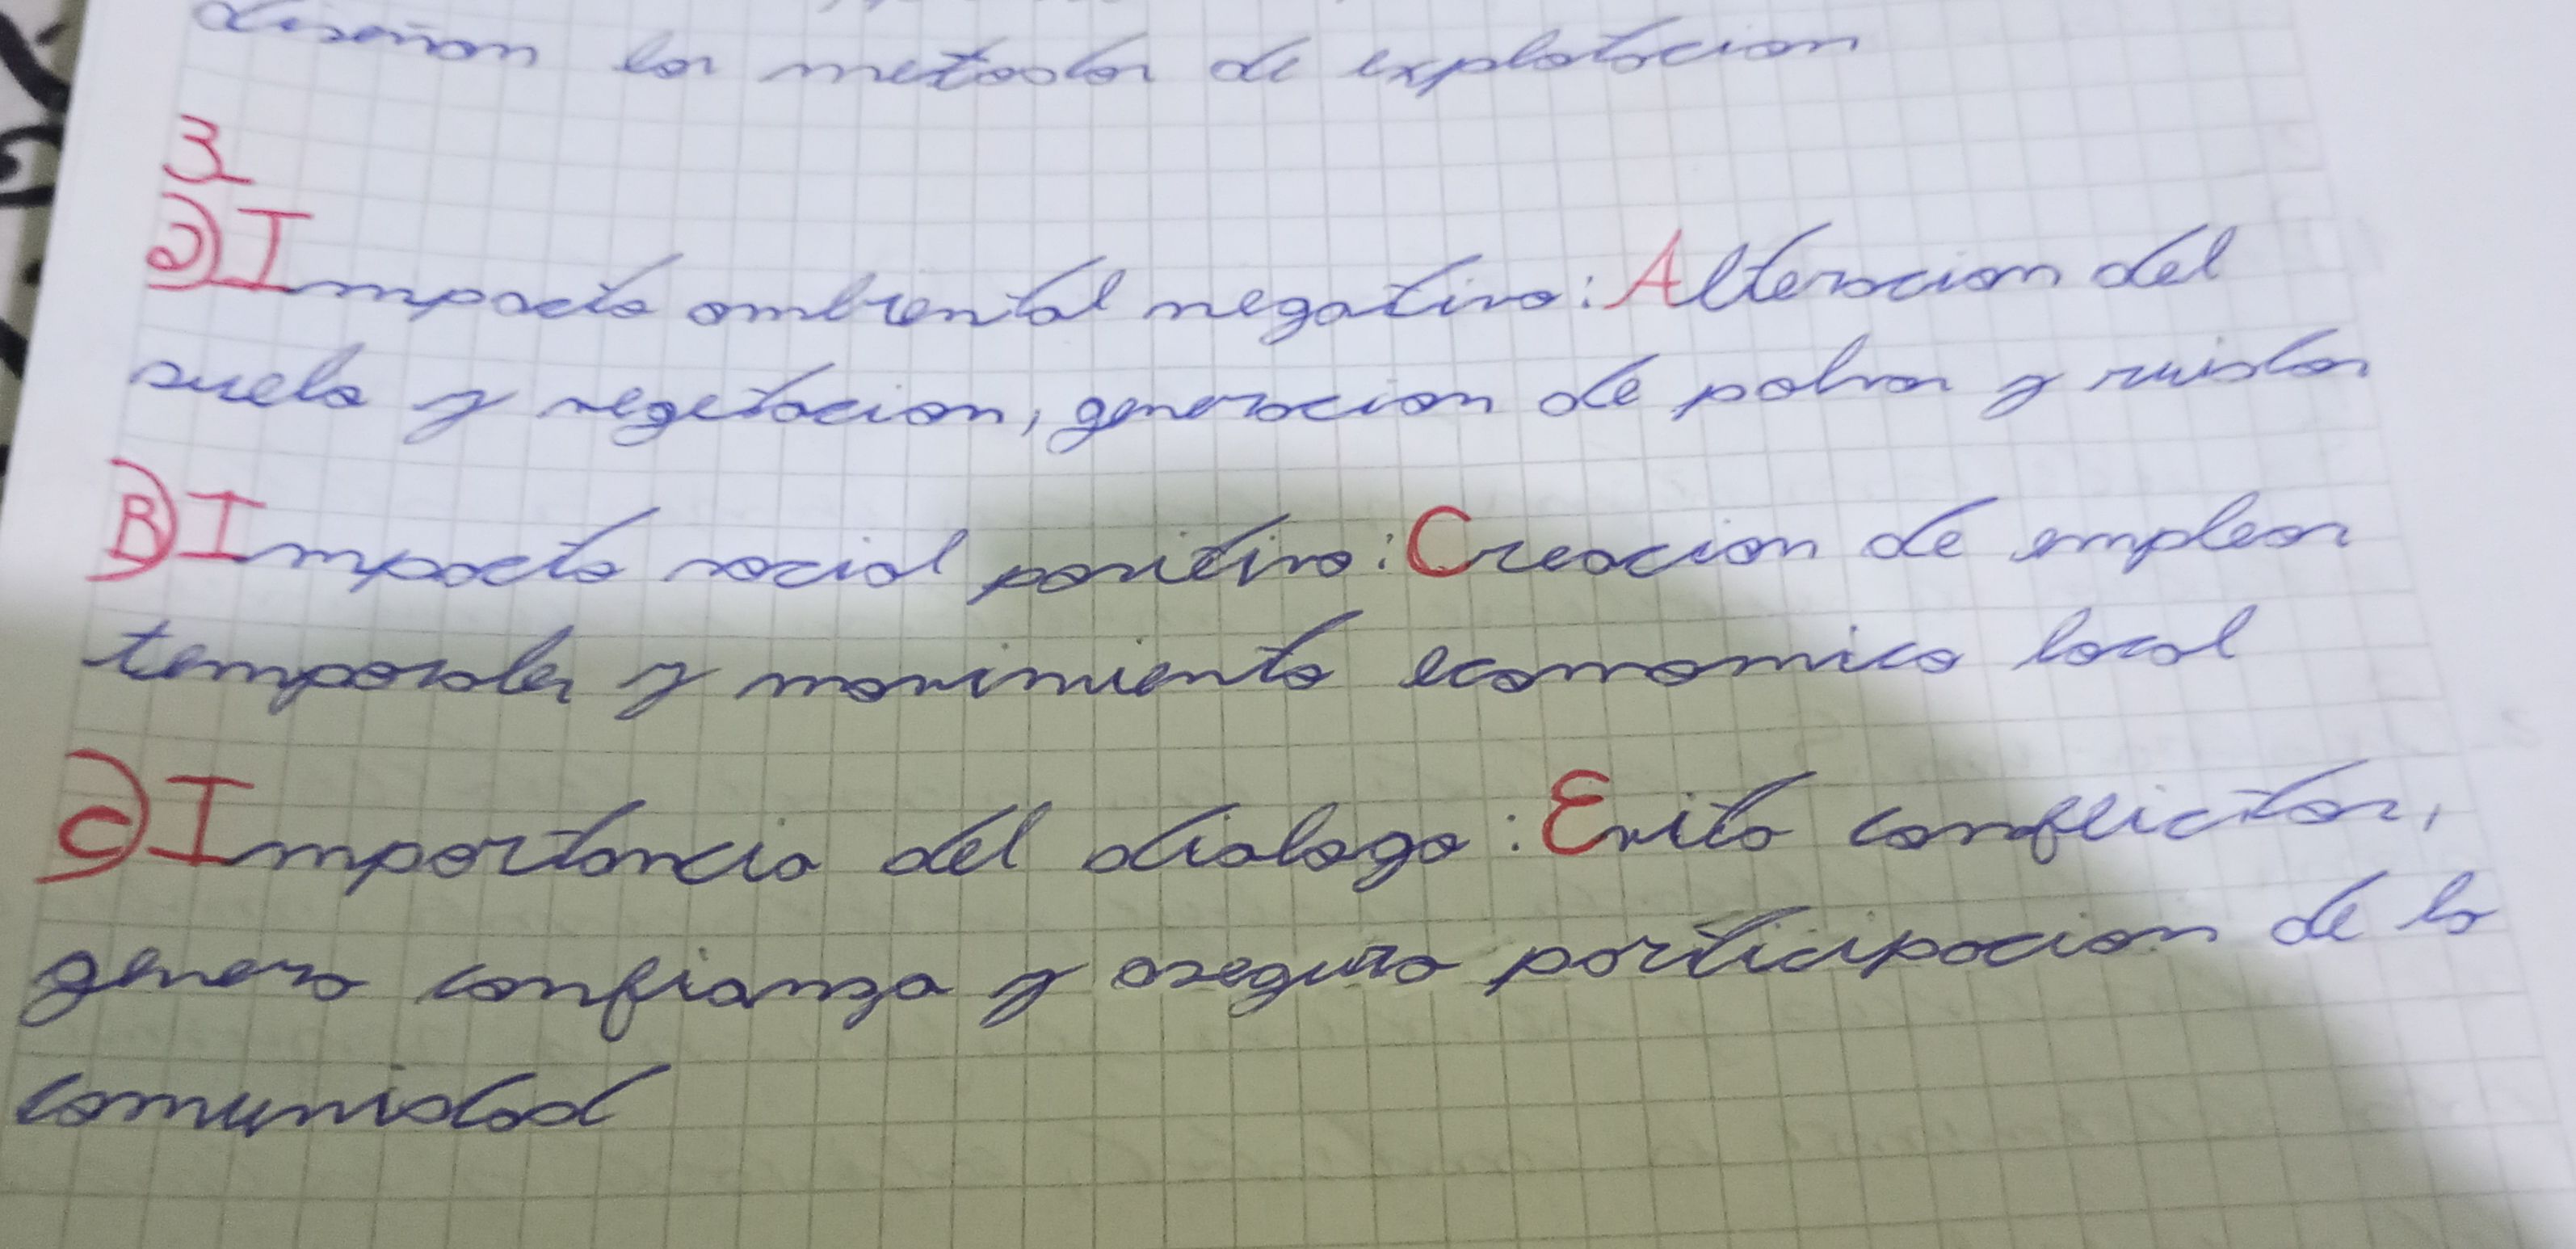 diseñan los metodos de explotacion
3
a) Impacto ambiental negativo: Alteracion del
suelo y vegetacion, generacion de polvos y ruidos
B) Impacto social positivo: Creacion de empleos
temporales y movimiento economico local
C) Importancia del dialogo: Evita conflictos,
genera confianza y asegura participacion de la
comunidad